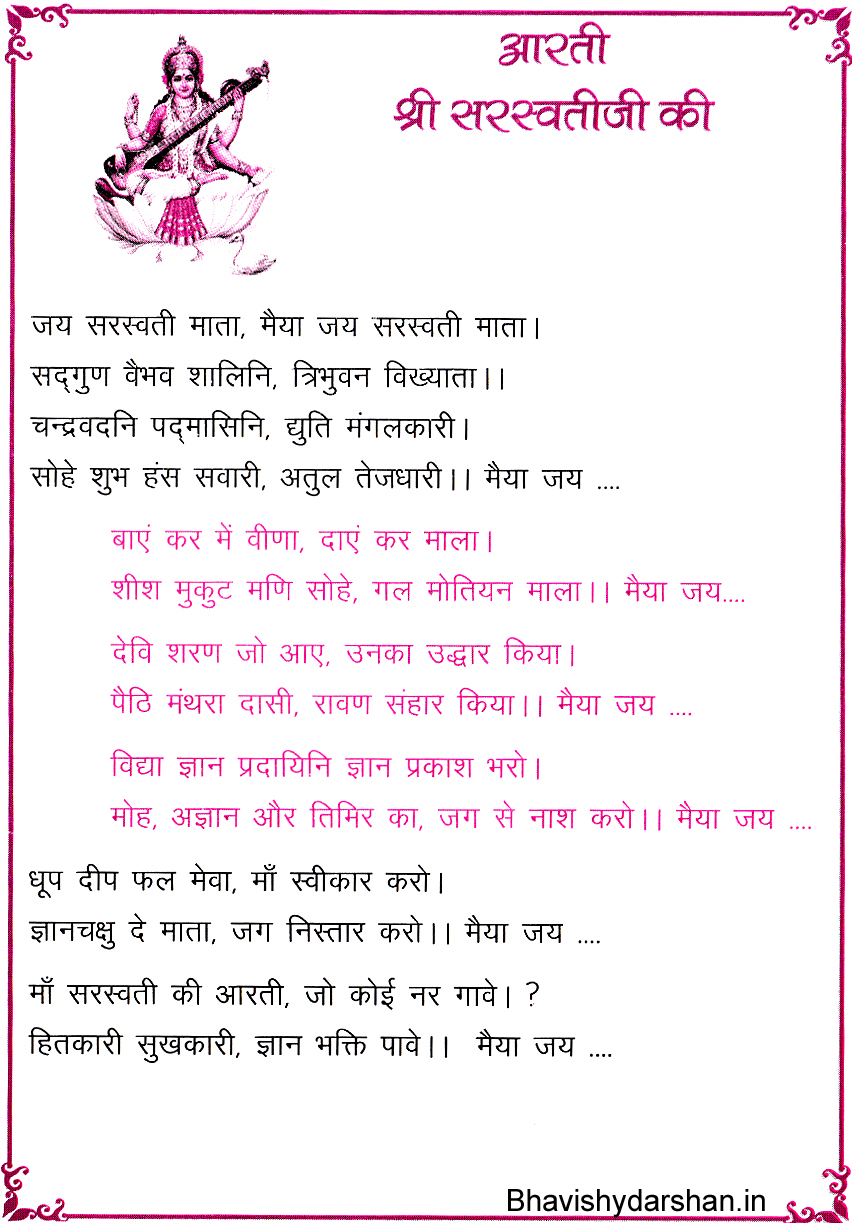 आरती
श्री सरस्वतीजी की
जय सरस्वती माता, मैया जय सरस्वती माता।
सद्‌गुण वैभव शालिनि, त्रिभुवन विख्याता।।
चन्द्रवदनि पद्‌मासिनि, द्युति मंगलकारी।
सोहे शुभ हंस सवारी, अतुल तेजधारी।। मैया जय ....
बाएं कर में वीणा, दाएं कर माला।
शीश मुकुट मणि सोहे, गल मोतियन माला।। मैया जय....
देवि शरण जो आए, उनका उद्धार किया।
पैठि मंथरा दासी, रावण संहार किया।। मैया जय ....
विद्या ज्ञान प्रदायिनि ज्ञान प्रकाश भरो।
मोह, अज्ञान और तिमिर का, जग से नाश करो।। मैया जय ....
धूप दीप फल मेवा, माँ स्वीकार करो।
ज्ञानचक्षु दे माता, जग निस्तार करो।। मैया जय ....
माँ सरस्वती की आरती, जो कोई नर गावे। ?
हितकारी सुखकारी, ज्ञान भक्ति पावे।। मैया जय ....
Bhavishydarshan.in